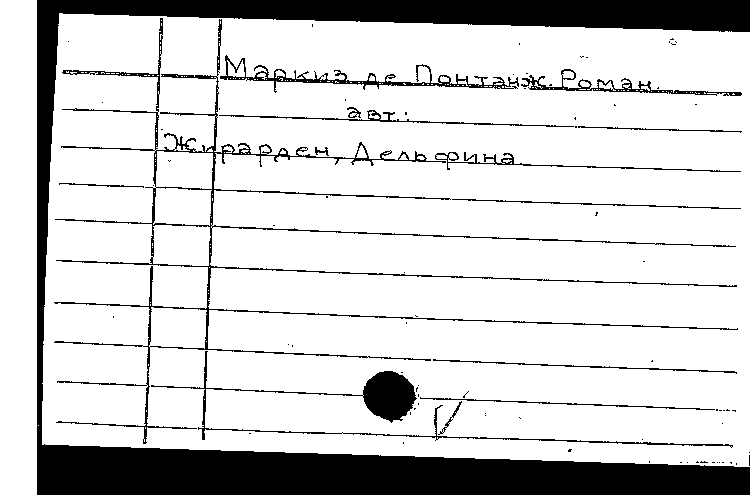 Маркиз де Понтанж. Роман.
авт.:
Жирарден, Дельфина